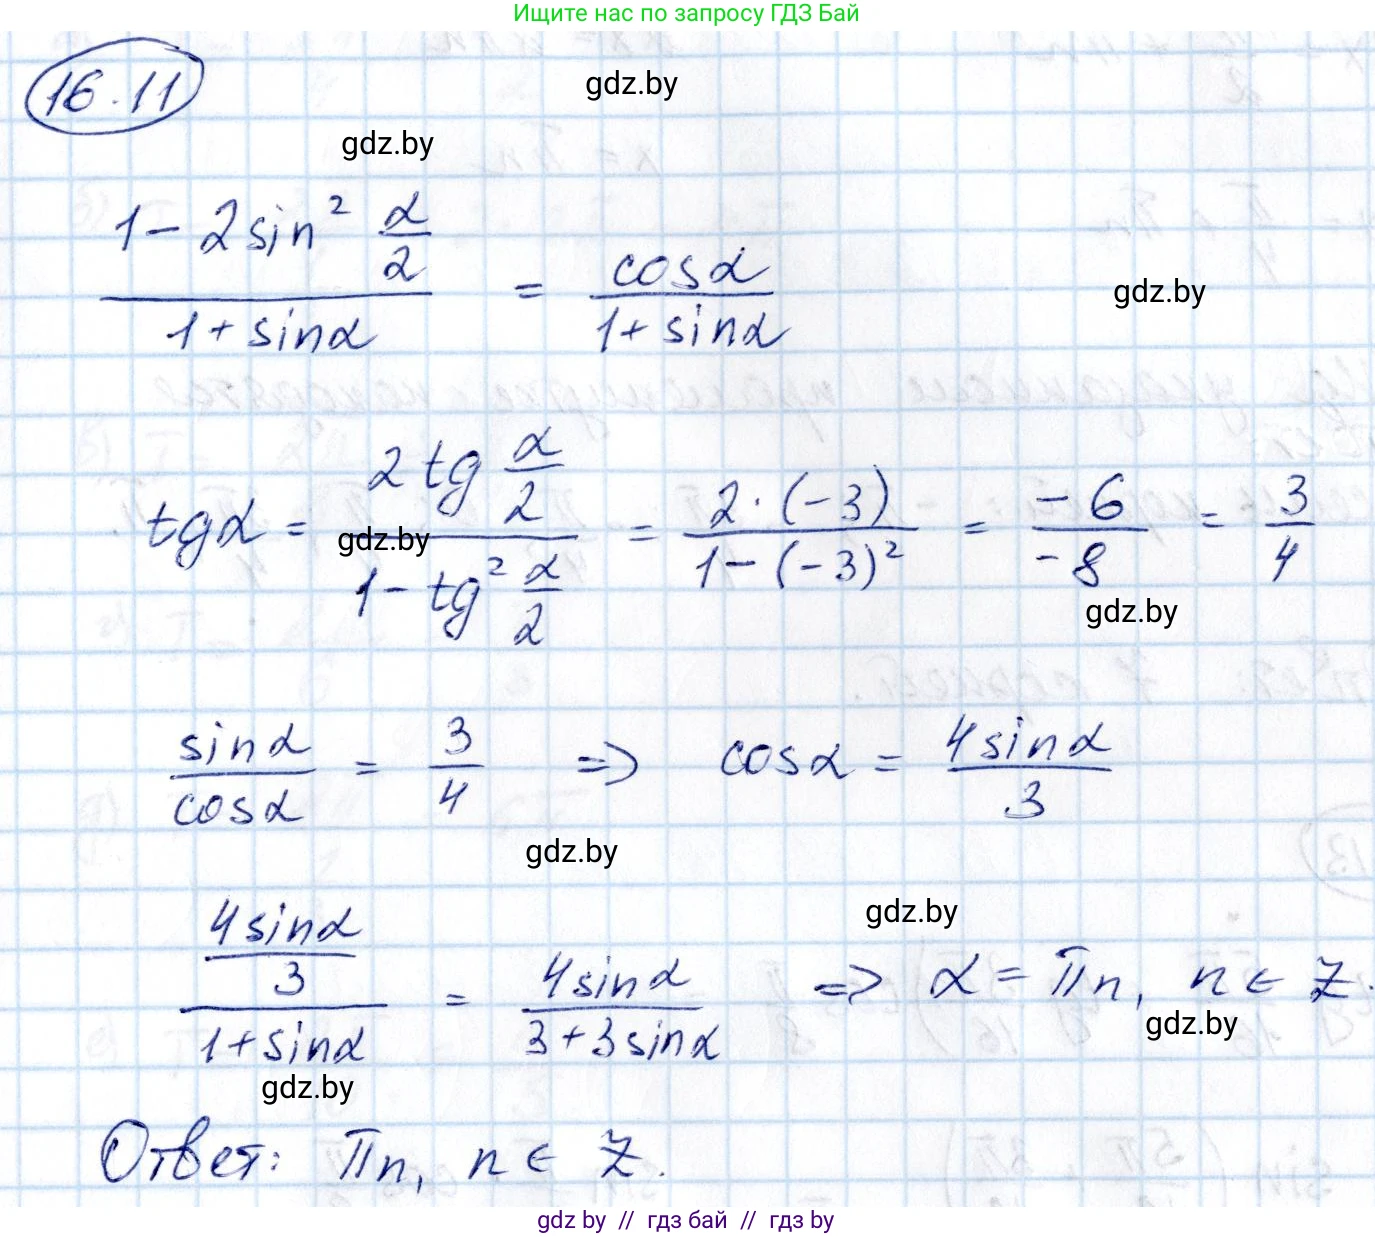 Ищите нас по запросу ГДЗ Бай
16.11
gdz.by
gdz.by
(1 - 2 sin² α/2) / (1 + sinα) = cosα / (1 + sinα)
gdz.by
tgα = (2 tg α/2) / (1 - tg² α/2) = (2 · (-3)) / (1 - (-3)²) = -6 / -8 = 3/4
gdz.by
gdz.by
sinα / cosα = 3/4 => cosα = 4sinα / 3
gdz.by
gdz.by
(4sinα / 3) / (1 + sinα) = 4sinα / (3 + 3sinα) => α = πn, n ∈ Z.
gdz.by
gdz.by
Ответ: πn, n ∈ Z.
gdz by // гдз бай // гдз by